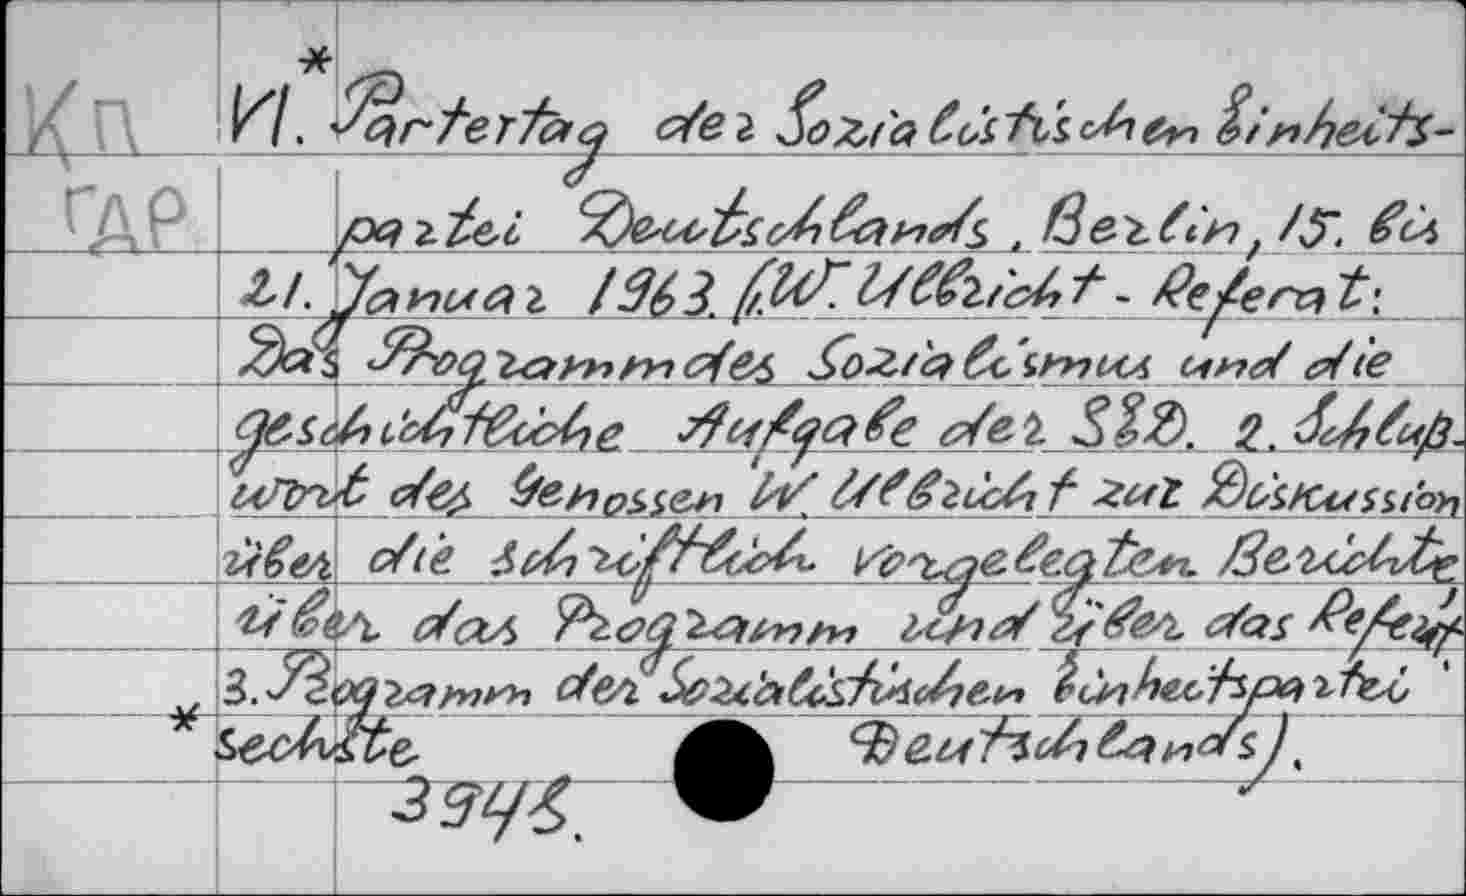 Кп VI.* Parteitag der Sozialistischen Einheits-
ГДР partei Deutschlands, Berlin, 15. bis
21. Januar 1963. (1. W. Ulbricht - Referat:
Das Programm des Sozialismus und die
geschichtliche Aufgabe der SED. 2. Schluß-
wort des Genossen W. Ulbricht zur Diskussion
über die schriftlich vorgelegten Berichte
über das Programm und über das Referat
3. Programm der Sozialistischen Einheitspartei
* sechste Deutschlands).